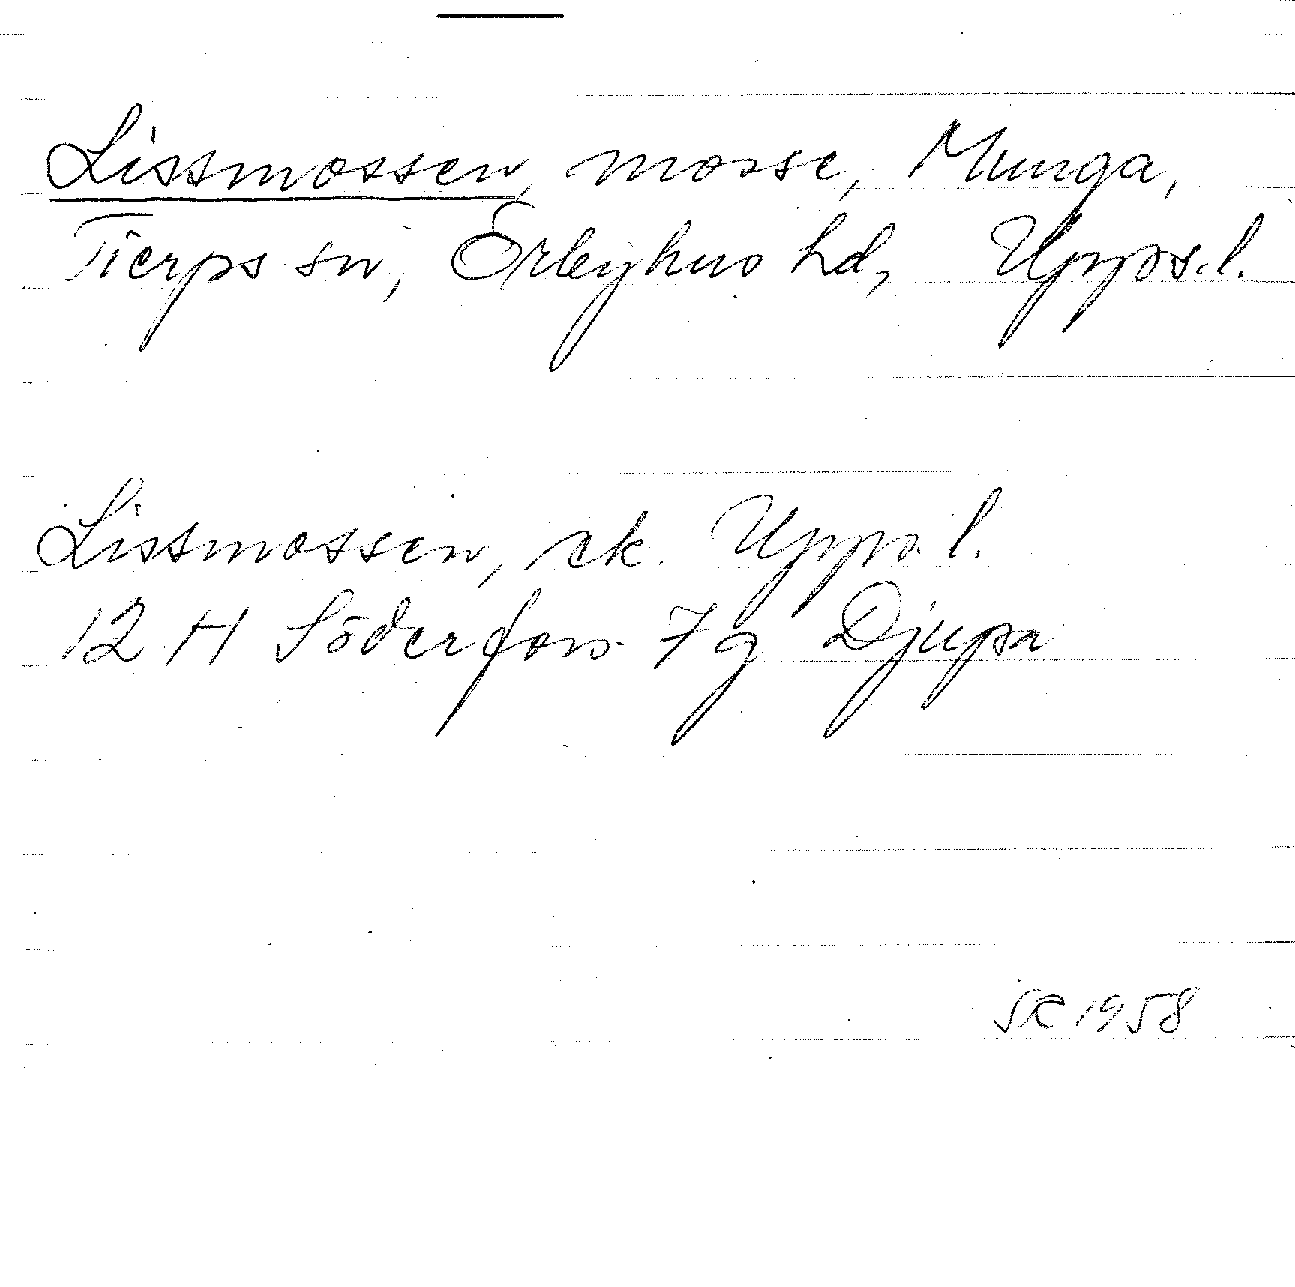 Lissmossen, mosse, Munga,
Tierps sn, Örbyhus hd, Upps.l.
Lissmossen, ek. Upps.l.
12 H Söderfors 7g Djupa
SR 1958